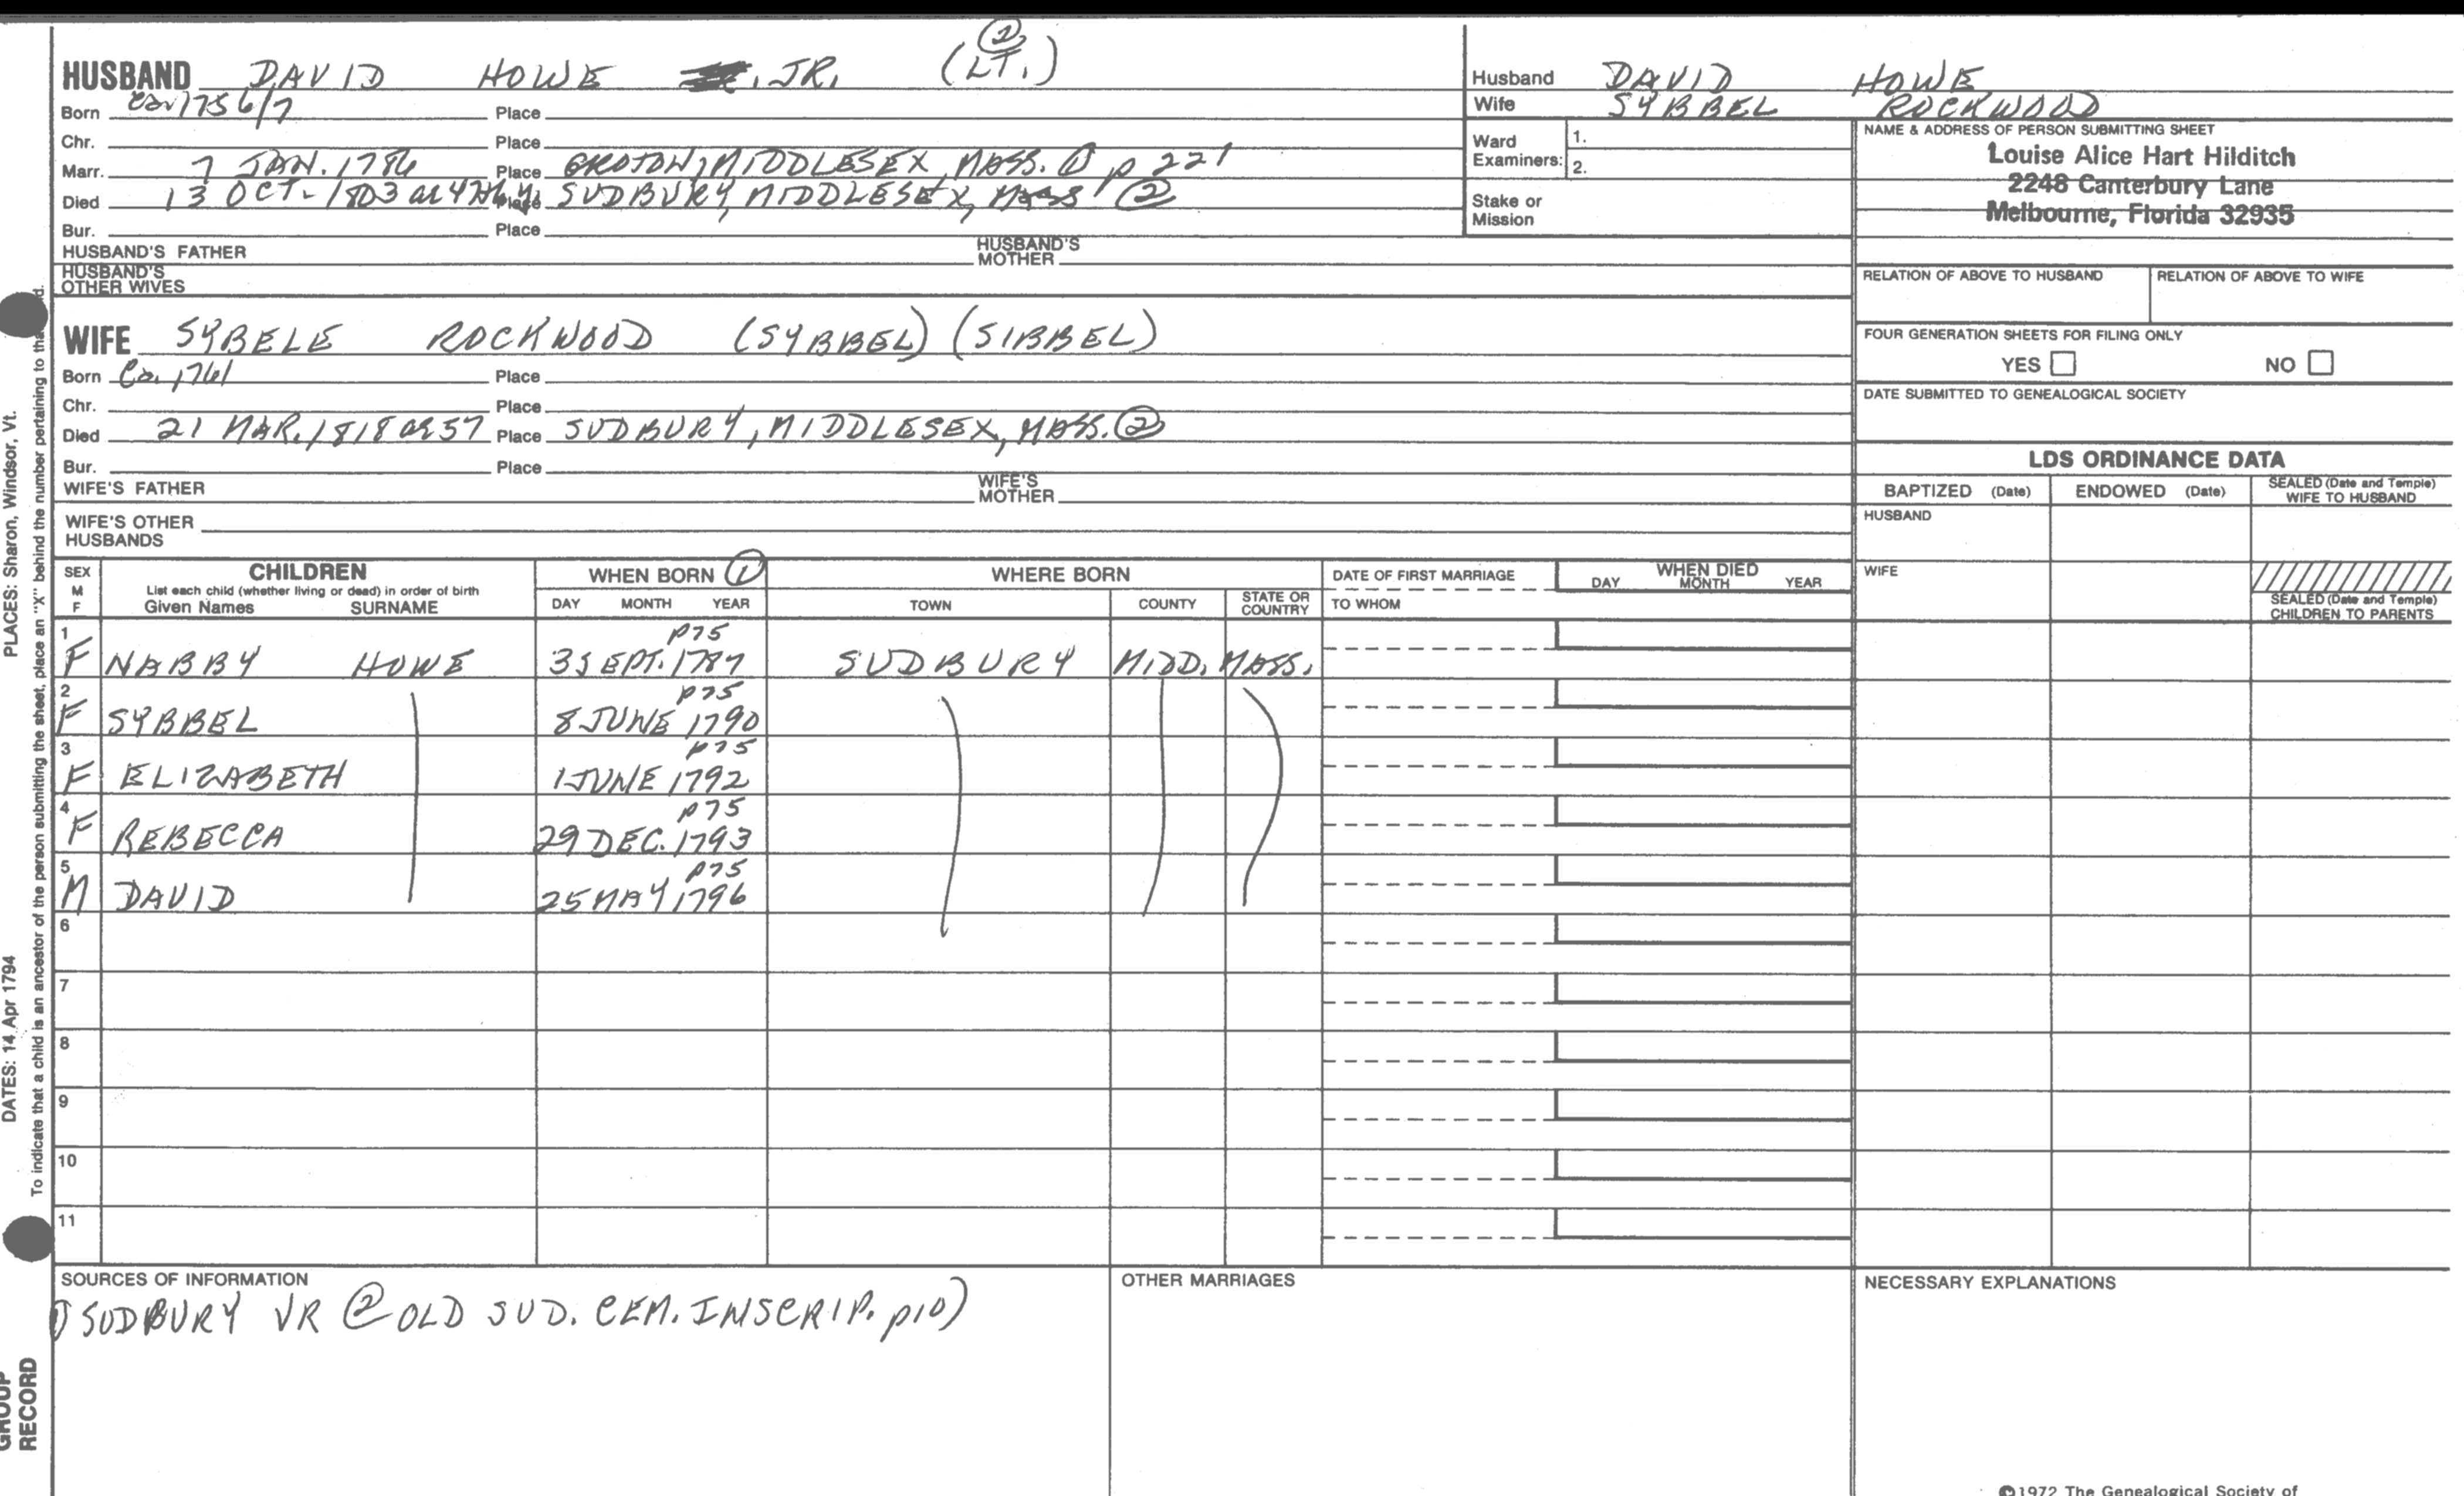 HUSBAND DAVID HOWE , JR. (LT.) ②
Born Ca. 1756/7 Place
Chr. Place
Marr. 7 JAN. 1786 Place GROTON, MIDDLESEX, MASS. ① p 221
Died 13 OCT. 1803 ae 47th y. Place SUDBURY, MIDDLESEX, MASS ②
Bur. Place
HUSBAND'S FATHER HUSBAND'S MOTHER
HUSBAND'S OTHER WIVES
WIFE SYBELE ROCKWOOD (SYBBEL) (SIBBEL)
Born Ca. 1761 Place
Chr. Place
Died 21 MAR. 1818 ae 57 Place SUDBURY, MIDDLESEX, MASS. ②
Bur. Place
WIFE'S FATHER WIFE'S MOTHER
WIFE'S OTHER HUSBANDS
Husband DAVID HOWE
Wife SYBBEL ROCKWOOD
Ward Examiners: 1.
2.
Stake or Mission
NAME & ADDRESS OF PERSON SUBMITTING SHEET
Louise Alice Hart Hilditch
2248 Canterbury Lane
Melbourne, Florida 32935
RELATION OF ABOVE TO HUSBAND RELATION OF ABOVE TO WIFE
FOUR GENERATION SHEETS FOR FILING ONLY
YES NO
DATE SUBMITTED TO GENEALOGICAL SOCIETY
LDS ORDINANCE DATA
BAPTIZED (Date) ENDOWED (Date) SEALED (Date and Temple) WIFE TO HUSBAND
HUSBAND
WIFE
SEALED (Date and Temple) CHILDREN TO PARENTS
SEX M F CHILDREN WHEN BORN ① WHERE BORN DATE OF FIRST MARRIAGE WHEN DIED
List each child (whether living or dead) in order of birth
Given Names SURNAME DAY MONTH YEAR TOWN COUNTY STATE OR COUNTRY TO WHOM DAY MONTH YEAR
1 p75
F NABBY HOWE 3 SEPT. 1787 SUDBURY MIDD. MASS.
2 p75
F SYBBEL 8 JUNE 1790
3 p75
F ELIZABETH 1 JUNE 1792
4 p75
F REBECCA 29 DEC. 1793
5 p75
M DAVID 25 MAY 1796
6
7
8
9
10
11
SOURCES OF INFORMATION OTHER MARRIAGES NECESSARY EXPLANATIONS
① SUDBURY VR ② OLD SUD. CEM. INSCRIP. p10)
©1972 The Genealogical Society of
PLACES: Sharon, Windsor, Vt.
DATES: 14 Apr 1794
To indicate that a child is an ancestor of the person submitting the sheet, place an "X" behind the number pertaining to
GROUP
RECORD